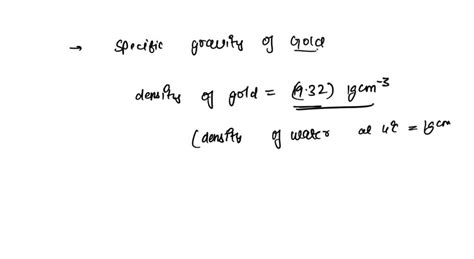 → Specific gravity of Gold
density of gold = (9.32) 1gcm⁻³
(density of water at 4℃ = 1gcm